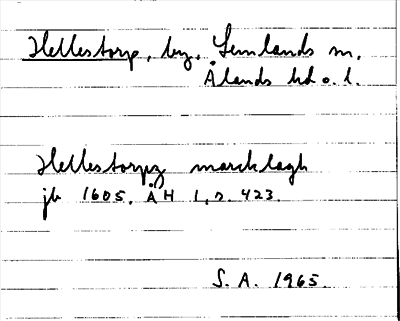 Hellestorp, by, Lemlands sn,
Ålands hd o. l.
Hellestorpz marcklagh
jb 1605. ÅH 1, s. 423.
S. A. 1965.